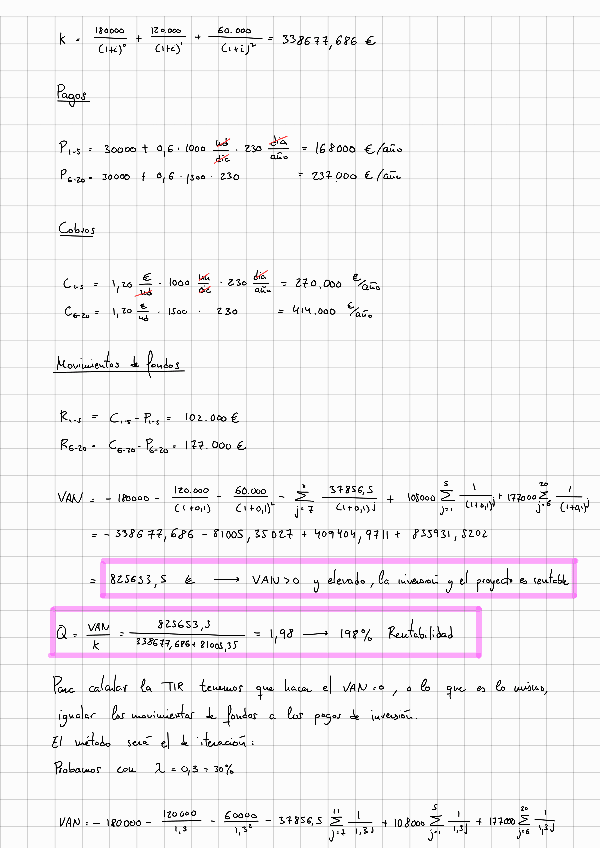 K = 180000/(1+i)⁰ + 120.000/(1+i)¹ + 60.000/(1+i)² = 338677,686 €
Pagos
P₁₋₅ = 30000 + 0,6 · 1000 ud/día · 230 día/año = 168000 €/año
P₆₋₂₀ = 30000 + 0,6 · 1500 · 230 = 237000 €/año
Cobros
C₁₋₅ = 1,20 €/ud · 1000 ud/día · 230 día/año = 270.000 €/año
C₆₋₂₀ = 1,20 €/ud · 1500 · 230 = 414.000 €/año
Movimientos de fondos
R₁₋₅ = C₁₋₅ - P₁₋₅ = 102.000 €
R₆₋₂₀ = C₆₋₂₀ - P₆₋₂₀ = 177.000 €
VAN = - 180000 - 120.000/(1+0,1) - 60.000/(1+0,1)² - Σ j=7 37856,5/(1+0,1)ʲ + 108000 Σ⁵ j=1 1/(1+0,1)ʲ + 177000 Σ²⁰ j=6 1/(1+0,1)ʲ
= - 338677,686 - 81005,35027 + 409404,9711 + 835931,5202
= 825653,5 € → VAN>0 y elevado, la inversión y el proyecto es rentable
Q = VAN/K = 825653,5/338677,686+81005,35 = 1,98 → 198% Rentabilidad
Para calcular la TIR tenemos que hacer el VAN=0, o lo que es lo mismo,
igualar los movimientos de fondos a los pagos de inversión.
El método será el de iteración:
Probamos con λ = 0,3 = 30%
VAN = - 180000 - 120000/1,3 - 60000/1,3² - 37856,5 Σ¹¹ j=7 1/1,3ʲ + 108000 Σ⁵ j=1 1/1,3ʲ + 177000 Σ²⁰ j=6 1/1,3ʲ